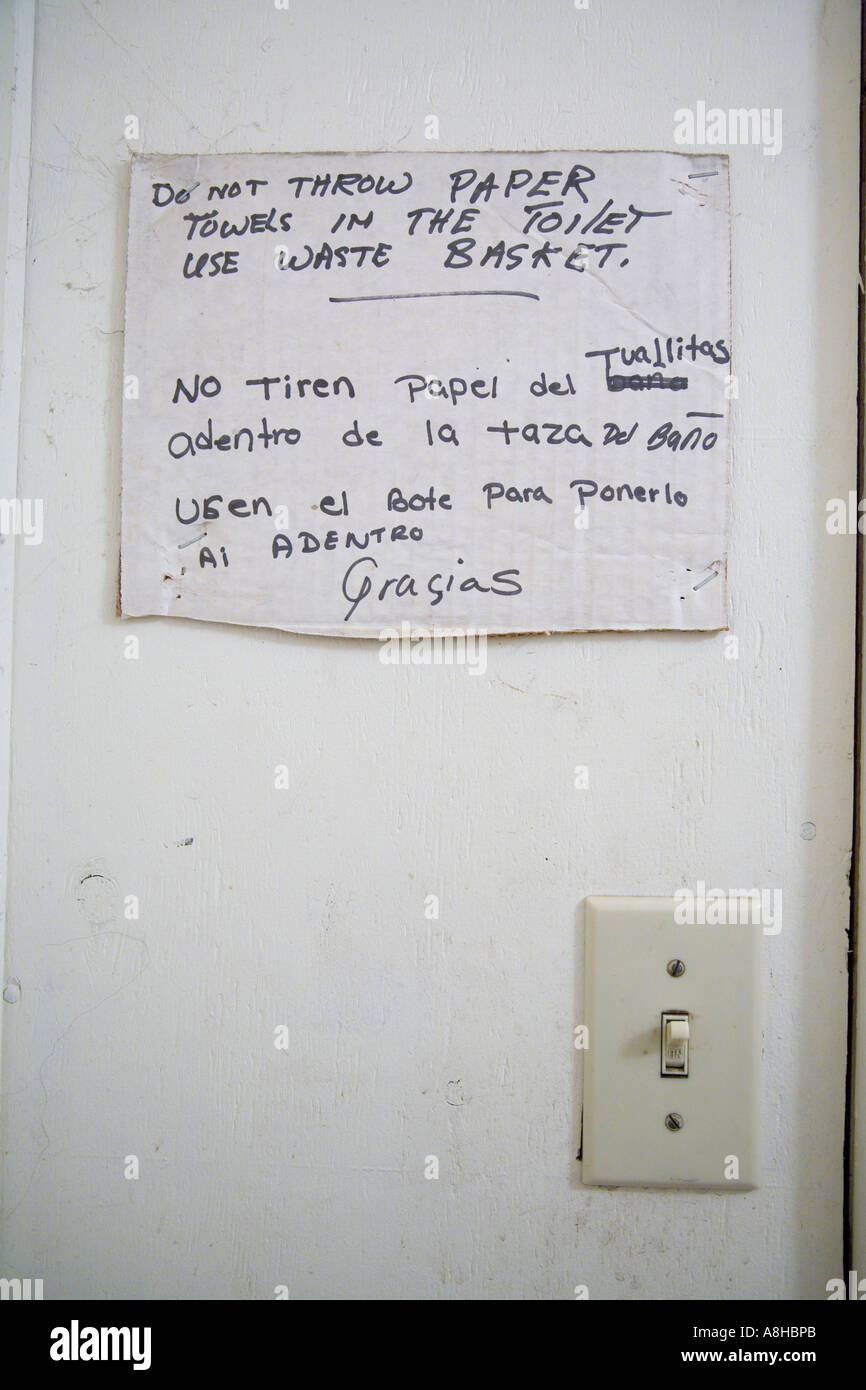 DO NOT THROW PAPER
TOWELS IN THE TOILET
USE WASTE BASKET.
NO TIREN PAPEL del Tuallitas
adentro de la taza Del Baño
USEN el Bote Para Ponerlo
Ai ADENTRO
Gracias
alamy
A8HBPB
www.alamy.com